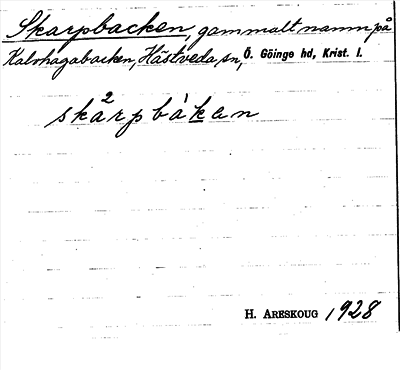 Skarpbacken, gammalt namn på
Kalvhagabacken, Hästveda sn, Ö. Göinge hd, Krist. l.
ska²rpbàkен
H. ARESKOUG 1928